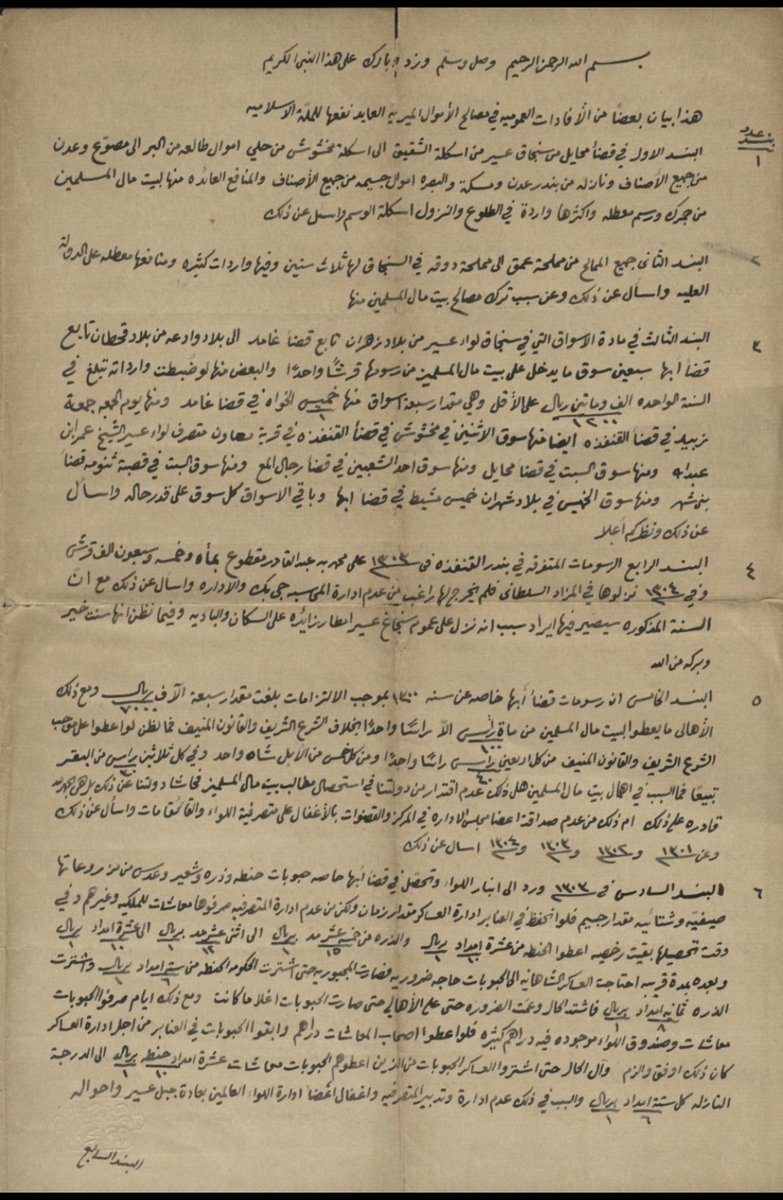 بسم الله الرحمن الرحيم وصل وسلم وزد وبارك على هذا النبي الكريم
هذا بيان بعضا من الأفادات العموميه في مصالح الأموال الميريه العايد نفعها للملة الاسلاميه
بند عدد
١
البند الاول في قضأ محايل من سنجاق عسير من اسكلة الشقيق الى اسكلة مخشوش من حلي اموال طالعه من البر الى مصوع وعدن
من جميع الأصناف ونازله من بندر عدن ومسكة والبصره اموال جسيمه من جميع الأصناف والمنافع العائده منها لبيت مال المسلمين
من جمرك ورسم معطله واكثرها واردة في الطلوع والنزول اسكلة الوسم واسل عن ذلك
٢
البند الثاني جميع الممالح من مملحة عمق الى مملحة دوقه في السنجاق لها ثلاث سنين وفيها واردات كثيره ومنافعها معطله على الدولة
العليه واسأل عن ذلك وعن سبب ترك مصالح بيت مال المسلمين منها
٣
البند الثالث في مادة الاسواق التي في سنجاق لواء عسير من بلاد زهران تابع قضأ غامد الى بلاد وادعه من بلاد قحطان تابع
قضأ ابها سبعين سوق ما يدخل على بيت مال المسلمين من رسومها قرشا واحدا والبعض منها لو ضبطت وارداته تبلغ في
السنة الواحده الف وماتين ريال على الأقل وهي مقدار سبعة اسواق منها خميس الخواه في قضا غامد ومنها يوم الجمعه جمعة
١٢٠٠
زبيد في قضأ القنفذه ايضا منها سوق الاثنين في مخشوش في قضأ القنفذه في قرية معاون متصرف لواء عسير الشيخ عمر ابن
عبداه ومنها سوق السبت في قضا محايل ومنها سوق احد الشعبين في قضأ رجال المع ومنها سوق السبت في قصبة تنومه قضأ
بني شهر ومنها سوق الخميس في بلاد شهران خميس مشيط في قضا ابها وباقي الاسواق كل سوق على قدر حاله واسأل
عن ذلك ونظركم أعلا
٤
البند الرابع الرسومات المتفرقه في بندر القنفذه في ١٣٠٣ على محمد بن عبد القادر مقطوع بمأة وخمسه وسبعون الف قرش
وفي ١٣٠٤ نزلوها في المزاد السلطاني فلم يخرج لها راغب من عدم ادارة المحاسبه جي بك والاداره واسال عن ذلك مع ان
السنة المذكوره سيصير فيها ايراد بسبب انه نزل على عموم سنجاغ عسير امطار زائده على السكان والباديه وفيما نظن انها سنت خير
وبركه من الله
٥
البند الخامس ان رسومات قضأ أبها خاصه عن سنه ١٣٠٠ بموجب الالتزامات بلغت مقدار سبعة الآف ريال ومع ذلك
الأهالي ما يعطوا لبيت مال المسلمين من ماة رأس الا راسا واحدا بخلاف الشرع الشريف والقانون المنيف فما نظن لو اعطوا على موجب
١٠٠
الشرع الشريف والقانون المنيف من كل اربعين راس راسا واحدا ومن كل خمس من الأبل شاه واحد وفي كل ثلاثين راس من البقر
٤٠
٣٠
تبيعا فما السبب في اهمال بيت مال المسلمين هل ذلك عدم اقتدار من دولتنا في استحصال مطالب بيت مال المسلمين فحاشا دولتنا عن ذلك بل هي
قادره على ذلك ام ذلك من عدم صداقة اعضا مجلس الاداره في المركز والقضوات بالأغفال على متصرفية اللواء والقائمقامات واسأل عن ذلك
وعن ١٣٠١ و ١٣٠٢ و ١٣٠٣ و ١٣٠٤ اسال عن ذلك
٦
البند السادس في ١٣٠٣ ورد الى انبار اللواء وتحصل في قضأ أبها خاصه حبوبات حنطه وذره وشعير وعدس من مزروعاتها
صيفيه وشتائيه مقدار جسيم فلو انحفظ في العنابر ادارة العساكر مقدار زمان ولكن من عدم ادارة المتصرفيه صرفوها معاشات للملكيه وغيرهم وفي
وقت تحصيلها بقيت رخيصه اعطوا الحنطه من عشرة امداد بريال والذره من خمسة عشر مد بريال الى اثنى عشر مد بريال الى عشرة امداد بريال
١٥
١٢
١٠
وبعده بمدة قريبه احتاجة العساكر الشاهانيه الى الحبوبات حاجه ضروريه فصارت المجبوريه حتى اشترت الحكومه الحنطه من سته امداد بريال واشترت
الذره ثمانيه امداد بريال فاشتد الحال وعمت الضروره حتى على الأهالي حتى صارت الحبوبات اغلا ما كانت ومع ذلك ايام صرفوا الحبوبات
٨
معاشات وصندوق اللواء موجوده فيه دراهم كثيره فلو اعطوا اصحاب المعاشات دراهم وابقوا الحبوبات في العنابر من اجل ادارة العساكر
كان ذلك اوفق والزم وآل الحال حتى اشتروا العساكر الحبوبات من الذين اعطوهم الحبوبات معاشات عشرة امداد حنطه بريال الى الدرجة
١٠
النازله كل ستة امداد بريال والسبب في ذلك عدم ادارة وتدبير المتصرفيه واغفال اعضأ ادارة اللواء العالمين بعادة جبل عسير واحواله
٦ ١
البند السابع